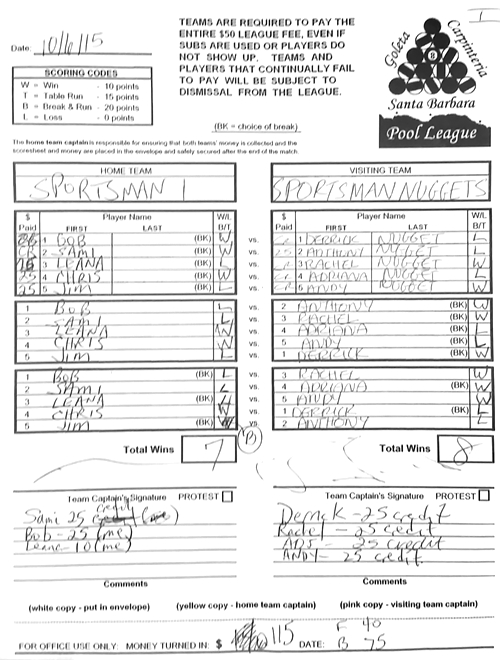 1
TEAMS ARE REQUIRED TO PAY THE
ENTIRE $50 LEAGUE FEE, EVEN IF
SUBS ARE USED OR PLAYERS DO
NOT SHOW UP. TEAMS AND
PLAYERS THAT CONTINUALLY FAIL
TO PAY WILL BE SUBJECT TO
DISMISSAL FROM THE LEAGUE.
Goleta Carpinteria
8
Santa Barbara
Pool League
Date: 10/6/15
SCORING CODES
W = Win - 10 points
T = Table Run - 15 points
B = Break & Run - 20 points
L = Loss - 0 points
(BK = choice of break)
The home team captain is responsible for ensuring that both teams' money is collected and the
scoresheet and money are placed in the envelope and safely secured after the end of the match.
HOME TEAM VISITING TEAM
SPORTSMAN 1 SPORTSMAN NUGGETS
$ Paid Player Name FIRST LAST W/L B/T $ Paid Player Name FIRST LAST W/L B/T
1 BOB (BK) W vs. 1 DERRICK NUGGET L
2 SAMI (BK) vs. 2 ANTHONY NUGGET L
3 LEANA (BK) vs. 3 RACHEL NUGGET W
25 4 CHRIS (BK) W vs. 4 ADRIANA NUGGET L
25 5 JIM (BK) L vs. 5 ANDY NUGGET W
1 BOB L vs. 2 ANTHONY (BK) W
2 SAMI L vs. 3 RACHEL (BK) W
3 LEANA W vs. 4 ADRIANA (BK) L
4 CHRIS W vs. 5 ANDY (BK) L
5 JIM L vs. 1 DERRICK (BK) W
1 BOB (BK) L vs. 3 RACHEL W
2 SAMI L vs. 4 ADRIANA (BK) W
3 LEANA (BK) vs. 5 ANDY W
4 CHRIS W vs. 1 DERRICK (BK) L
5 JIM (BK) vs. 2 ANTHONY L
Total Wins 7 Total Wins 8
Team Captain's Signature PROTEST Team Captain's Signature PROTEST
Sami 25 credit (me) Derrick - 25 credit
Bob - 25 (me) Rachel - 25 credit
Leana - 10 (me) ADS - 25 credit
ANDY - 25 credit
Comments Comments
(white copy - put in envelope) (yellow copy - home team captain) (pink copy - visiting team captain)
F 40
FOR OFFICE USE ONLY: MONEY TURNED IN: $ 115 DATE: B 75